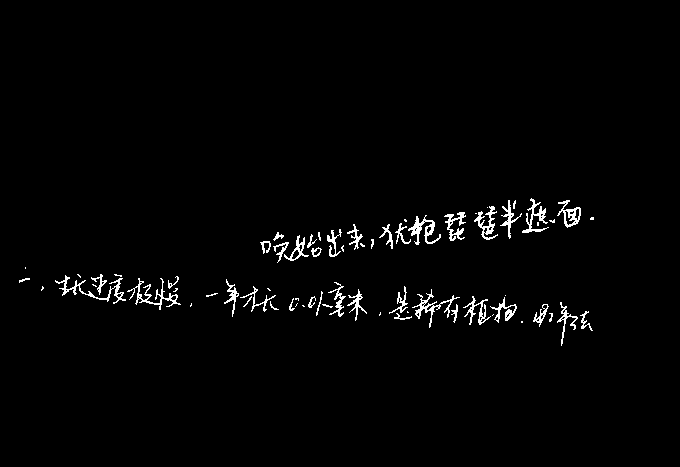 唤始出来,犹抱琵琶半遮面.
二,生长速度极慢,一年才长0.01毫米,是稀有植物.